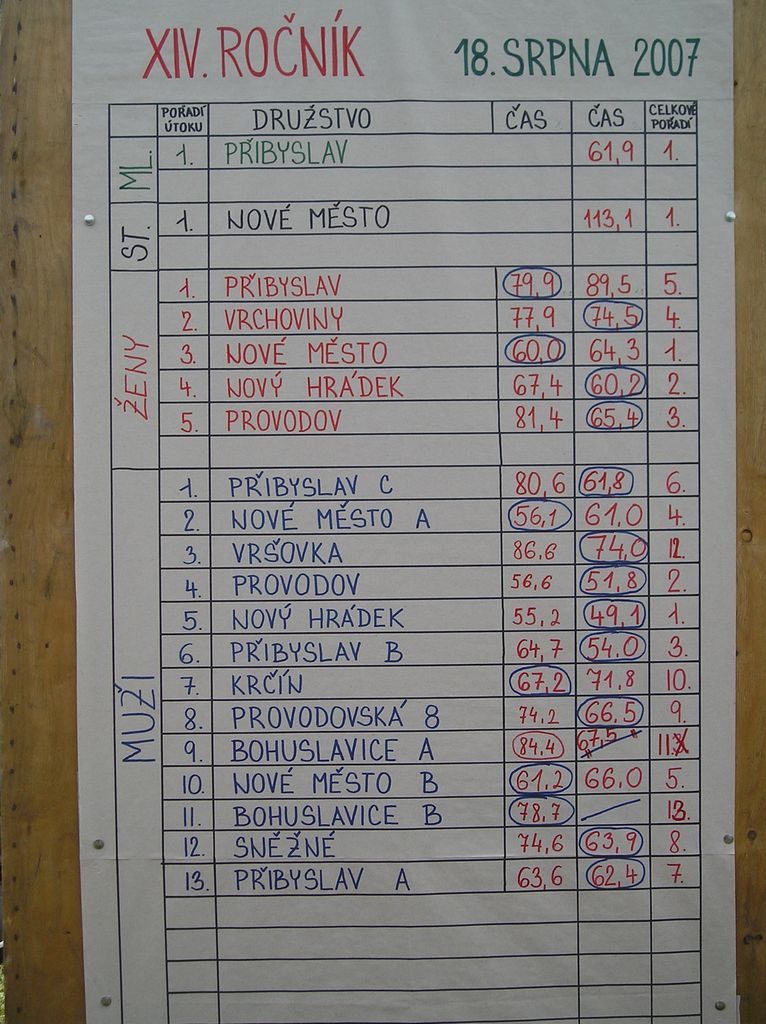 XIV. ROČNÍK 18. SRPNA 2007
POŘADÍ ÚTOKU DRUŽSTVO ČAS ČAS CELKOVÉ POŘADÍ
ML.
1. PŘIBYSLAV 61,9 1.
ST.
1. NOVÉ MĚSTO 113,1 1.
ŽENY
1. PŘIBYSLAV 79,9 89,5 5.
2. VRCHOVINY 77,9 74,5 4.
3. NOVÉ MĚSTO 60,0 64,3 1.
4. NOVÝ HRÁDEK 67,4 60,2 2.
5. PROVODOV 81,4 65,4 3.
MUŽI
1. PŘIBYSLAV C 80,6 61,8 6.
2. NOVÉ MĚSTO A 56,1 61,0 4.
3. VRŠOVKA 86,6 74,0 12.
4. PROVODOV 56,6 51,8 2.
5. NOVÝ HRÁDEK 55,2 49,1 1.
6. PŘIBYSLAV B 64,7 54.0 3.
7. KRČÍN 67,2 71,8 10.
8. PROVODOVSKÁ 8 74,2 66,5 9.
9. BOHUSLAVICE A 84,4 67,5 11.
10. NOVÉ MĚSTO B 61,2 66,0 5.
11. BOHUSLAVICE B 78,7 13.
12. SNĚŽNÉ 74,6 63,9 8.
13. PŘIBYSLAV A 63,6 62,4 7.